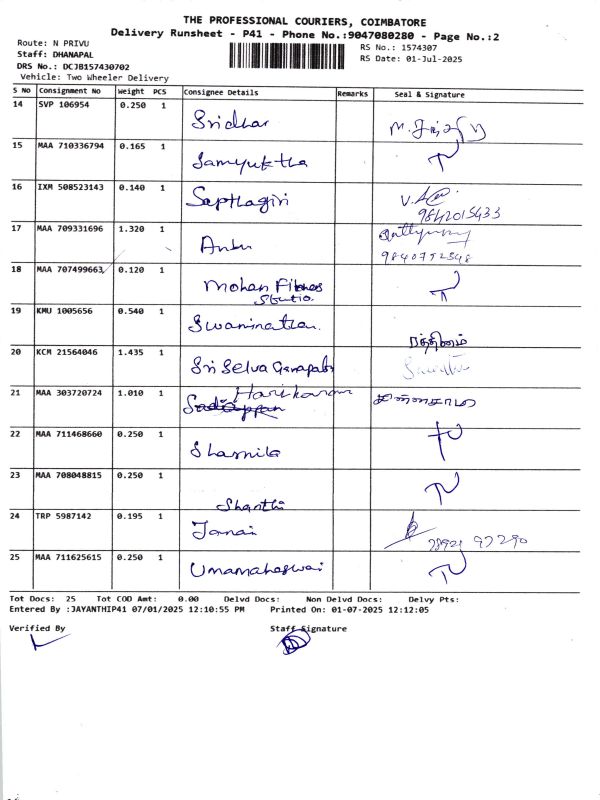 THE PROFESSIONAL COURIERS, COIMBATORE
Delivery Runsheet - P41 - Phone No.:9047080280 - Page No.:2
Route: N PRIVU
RS No.: 1574307
Staff: DHANAPAL
RS Date: 01-Jul-2025
DRS No.: DCJB157430702
Vehicle: Two Wheeler Delivery
S No Consignment No Weight PCS Consignee Details Remarks Seal & Signature
14 SVP 106954 0.250 1 Sridhar
15 MAA 710336794 0.165 1 Samyuktha
16 IXM 508523143 0.140 1 Sapthagiri
9842015433
17 MAA 709331696 1.320 1 Anbu
9840752548
18 MAA 707499663 0.120 1 Mohan Fitness
Studio
19 KMU 1005656 0.540 1 Swaminathan
ரத்தினம்
20 KCM 21564046 1.435 1 Sri Selva Ganapathi
21 MAA 303720724 1.010 1 Hariharan
22 MAA 711468660 0.250 1 Sharmila
23 MAA 708048815 0.250 1 Shanthi
24 TRP 5987142 0.195 1 Janai
25 MAA 711625615 0.250 1 Umamaheswari
Tot Docs: 25 Tot COD Amt: 0.00 Delvd Docs: Non Delvd Docs: Delvy Pts:
Entered By :JAYANTHIP41 07/01/2025 12:10:55 PM Printed On: 01-07-2025 12:12:05
Verified By Staff Signature